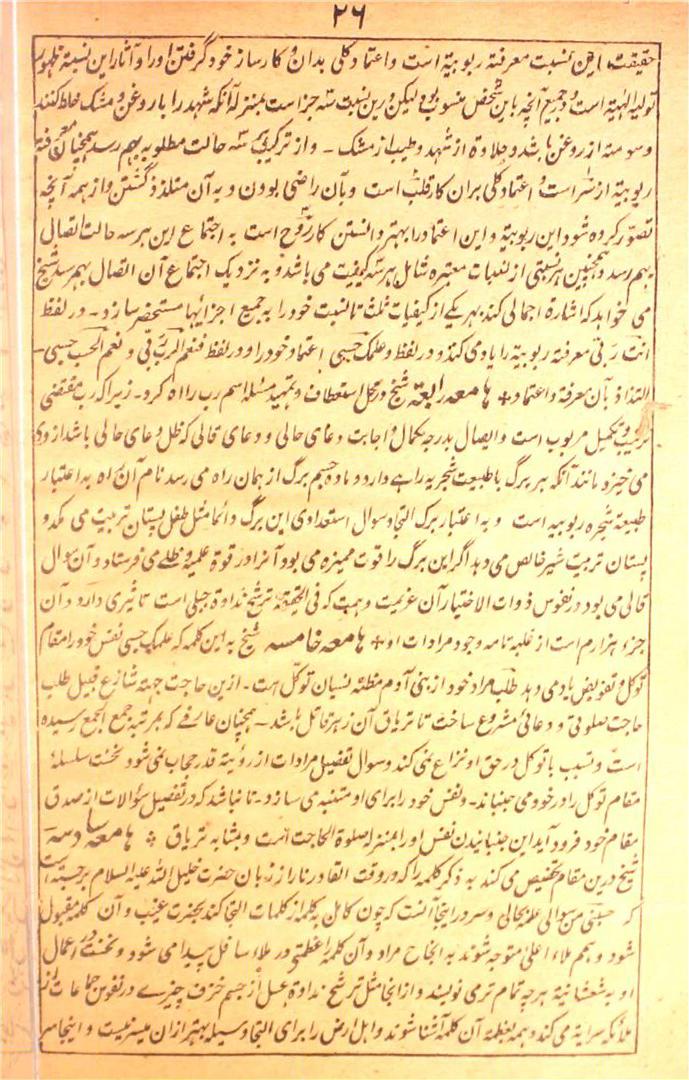 ۲۶
حقیقت این نسبت معرفتہ ربوبیۃ است و اعتماد کلی بدان و کارساز خود گرفتن او را و آثار این نسبۃ ظہور
تولیہ الٰہیۃ است و جمیع آنچہ باین شخص منسوب بود لیکن درین نسبت سہ جز است بمنزلہ آنکہ شہد را با روغن و مشک خلط کنند
و سومتہ از روغن باشد و حلاوۃ از شہد و طیب از مشک ۔ و از ترکیب ہر سہ حالت مطلوبہ بہم رسد ہمچنان معرفۃ
ربوبیۃ از سر است و اعتماد کلی بران کار قلب است و بآن راضی بودن و بہ آن متلذذ گشتن و از ہمہ آنچہ
تصور کردہ شود این ربوبیۃ و این اعتماد را بہتر دانستن کار روح است بہ اجتماع این ہر سہ حالت اتصال
بہم رسد و ہمچنین ہر نسبتی از نسبات معتبرہ شامل ہر سہ کیفیت می باشد و بہ نزدیک اجتماع آن اتصال بہم رسد شیخ
می خواہد کہ اشارۃ اجمالی کند بہر یکے از کیفیات ثلث تا نسبت خود را بہ جمیع اجزائیہا مستحضر سازد ۔ در لفظ
انت ربی معرفۃ ربوبیۃ را یاد می کند و در لفظ و علمک حسبی اعتماد خود را و در لفظ فنعم الرب ربی و نعم الحسب حسبی ۔
التذاذ بآن معرفۃ و اعتماد + ہامعہ رابعۃ شیخ در محل استعطاف و تمہید مسئلہ اسم رب را اہ کرد ۔ زیرا کہ رب مقتضی
تربیت و تکمیل مربوب است و ایصال بدرجہ کمال و اجابت دعای حالی و دعای قالی کہ ظل دعای حالی باشد از وی
می خیزد مانند آنکہ ہر برگ با طبیعت شجریہ راہے دارد و مادہ جسم برگ از ہمان راہ می رسد نام آن راہ بہ اعتبار
طبیعۃ شجرہ ربوبیہ است و بہ اعتبار برگ التجا و سوال استعدادی این برگ دائما مثل طفل پستان تربیت می مکد و
پستان تربیت شیر خالص می دہد اگر این برگ را قوت ممیزہ می بود آنرا در قوۃ علمیہ و نطقے می فرستاد و آن سوال
قالی می بود در نفوس ذوات الاختیار آن عزیمت و ہمت کہ فی الحقیقۃ ترشح نداوۃ جبلی است تاثیری دارد و آن
جزء ہزارم است از غلبہ تامہ وجود مرادات او + ہامعہ خامسہ شیخ بہ این کلمہ کہ علمک حسبی نفس خود را مقام
توکل و تفویض یاد می دہد طلب مراد خود از بنی آدم مظنہ نسیان توکل ہست ۔ ازین حاجت جہتہ شارع قبیل طلب
حاجت صلوتی و دعائی مشروع ساخت تا تریاق آن زہر قاتل باشد ۔ ہمچنان عارفے کہ بمرتبہ جمع الجمع رسیدہ
است و تسبب با توکل در حق او نزاع نمی کند و سوال تفصیل مرادات از رؤیۃ قدر حجاب نمی شود نخست سلسلۂ
مقام توکل را در خود می جنباند ۔ و نفس خود را برای او متنبہ می سازد ۔ تا نباشد کہ در تفصیل سوالات از صدق
مقام خود فرود آید این جنبانیدن نفس او را بمنزلہ صلوۃ الحاجت است و بمشابہ تریاق ؞ ہامعہ سادسہ
شیخ درین مقام تخصیص می کند بہ ذکر کلمہ را کہ در وقت القا در نار از زبان حضرت خلیل اللہ علیہ السلام برجستہ است
کہ حسبی من سوالی علمہ بحالی و سر در اینجا آنست کہ چون کامل بہ کلمہ از کلمات التجا کند بحضرت غیب و آن کلمہ مقبول
شود و ہمم ملاء اعلی متوجہ شوند بہ انجاح مراد و آن کلمہ را عظمتی در ملاء سافل پیدا می شود و نخست در اعمال
او بہ شعشانیہ ہر چہ تمام تری نویسند و از انجا مثل ترشح نداوۃ عسل از جسم خزف چیزے در نفوس جماعات از
ملائکہ سرایہ می کند و ہمہ بعظمۃ آن کلمہ آشنا شوند و اہل ارض را برای التجا وسیلہ بہتر ازان میسر نیست و اینجا سر